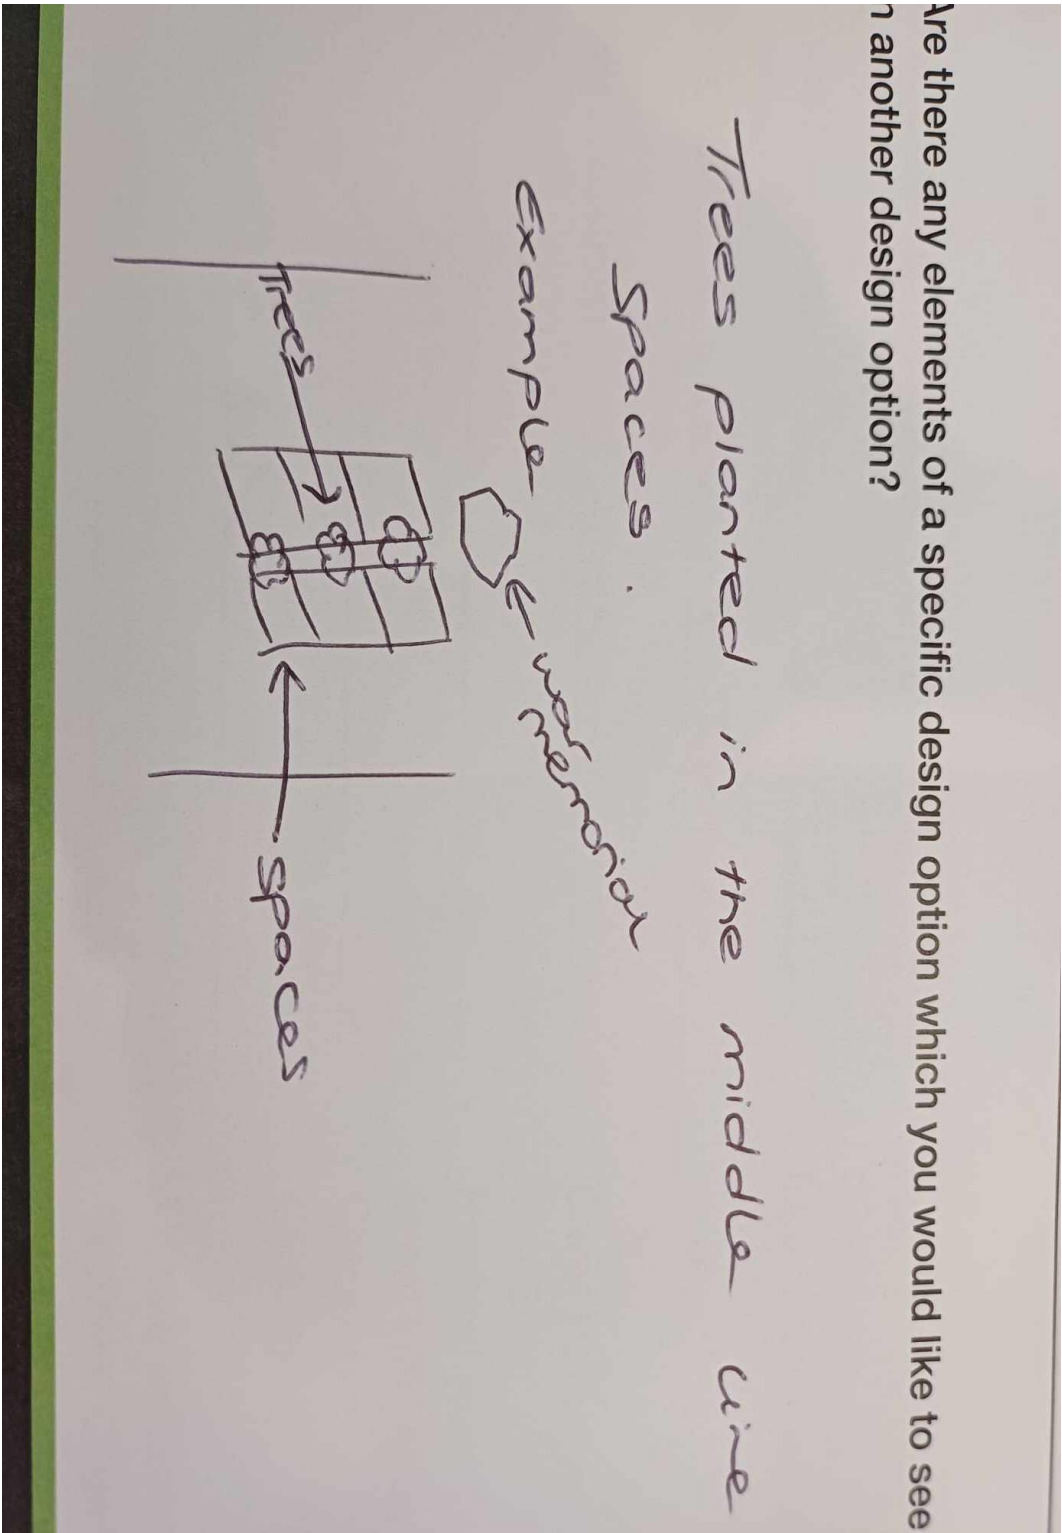 Are there any elements of a specific design option which you would like to see
n another design option?
Trees planted in the middle line
Spaces.
Example
war
memorial
Trees
spaces